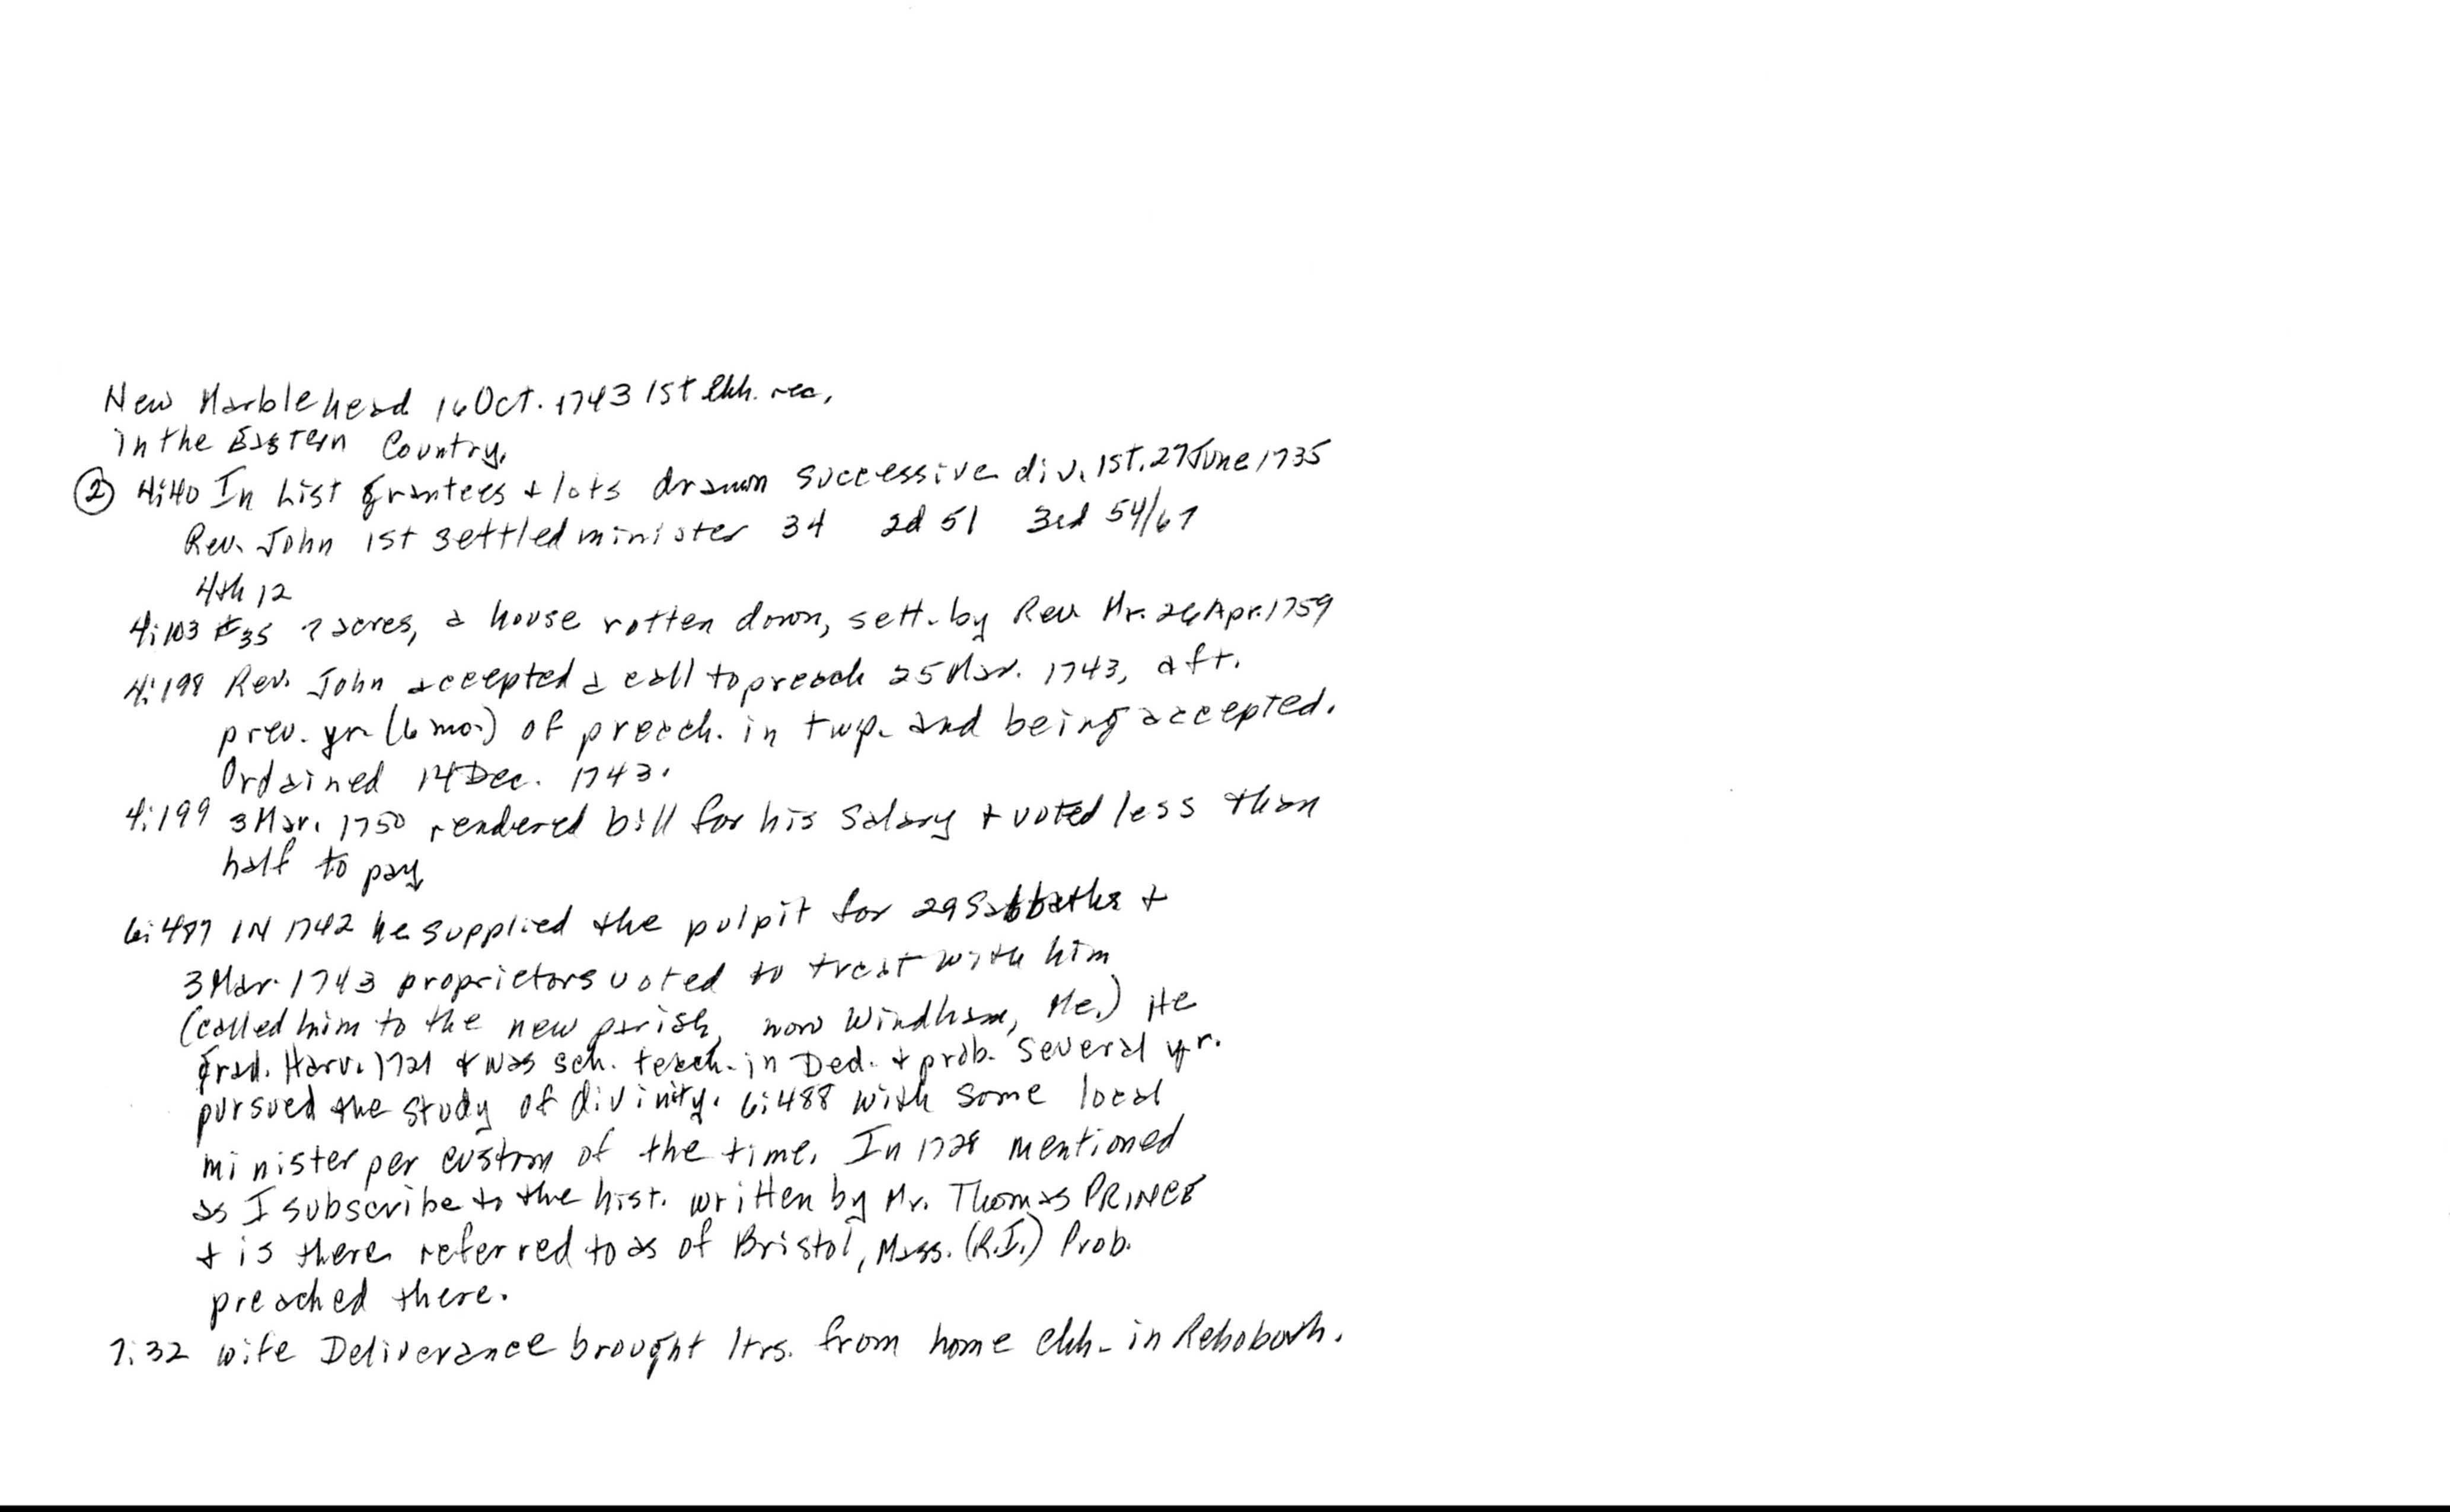 New Marblehead 16 Oct. 1743 1st Chh. rec,
in the Eastern Country.
② 4:40 In List grantees + lots drawn successive div. 1st, 27 June 1735
Rev. John 1st settled minister 34 2d 51 3rd 54/67
4th 12
4:103 #35 7 acres, a house rotten down, sett. by Rev Mr. 26 Apr. 1759
4:198 Rev. John accepted a call to preach 25 Mar. 1743, aft.
prev. yr (6 mo.) of preach. in twp. and being accepted.
Ordained 14 Dec. 1743.
4:199 3 Mar. 1750 rendered bill for his Salary + voted less than
half to pay
6:487 IN 1742 he supplied the pulpit for 29 Sabbaths +
3 Mar. 1743 proprietors voted to treat with him
(called him to the new parish, now Windham, Me.) He
grad. Harv. 1721 + was sch. teach. in Ded. + prob. several yr.
pursued the study of divinity. 6:488 with some local
minister per custom of the time. In 1728 mentioned
as I subscribe to the hist. written by Mr. Thomas PRINCE
+ is there referred to as of Bristol, Mass. (R.I.) Prob.
preached there.
7:32 wife Deliverance brought ltrs. from home chh. in Rehoboth.